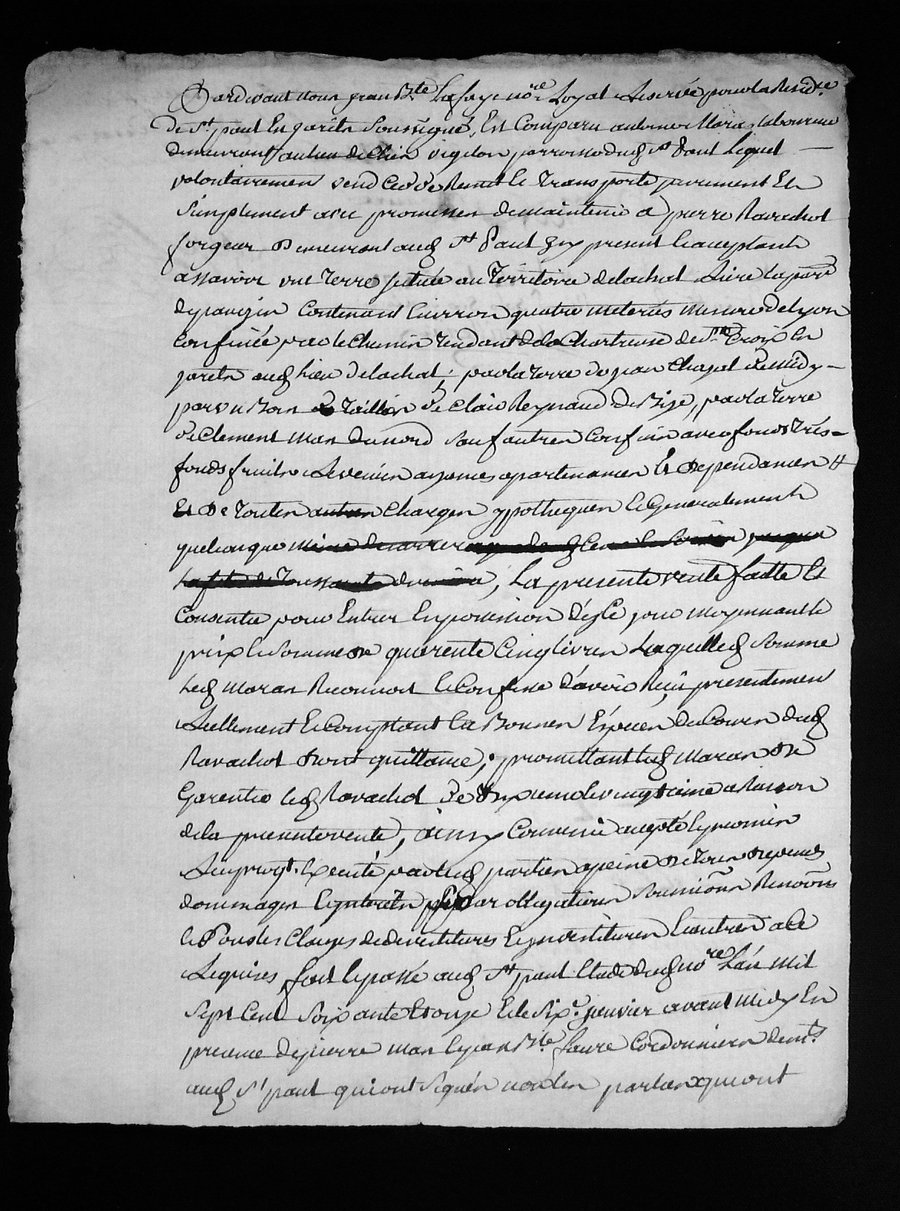 Pardevant nous Jean Bte Lafaye nore Royal Reservé pour la Resid.ce
de St paul En garêts Soussigné, Est Comparu antoine Maras laboureur
demeurant au lieu de vigilon parroisse dud St Paul Lequel
volontairement vend Cedde Remet Et Transporte purement Et
Simplement avec promesses de maintenir a pierre Ravachol
forgeur Demeurant aud St Paul Ycy present Et acceptant
assavoir une Terre scituée au Territoire delachal
contenant Environ quatre meterées mesure de Lyon
Confinée par le Chemin Tendant de la Chartreuse de Ste Croix En
jarêts aud Lieu delachal; par la Terre de jean Chapol de midy
par un Bois de Claire Reynaud de Bize, par la Terre
de Clement mas du nord Sauf autres Confins avec fonds Très-
fonds fruits aysances apartenances Et Dependances #
Et De Toutes autres Charges ypotheques Et Generalement
quelconque, La presente vente faitte Et
Consentie pour Entrer En possession Dez Ce jour moyennant le
prix Et Somme de quarente Cinq livres Laquelle d Somme
Led maras Reconnoit Et Confesse d'avoir Reçu presentement
Reellement Et Comptant En Bonnes Especes de Cours dud
Ravachol Dont quittance; promettant led Maras De
Garentir led Ravachol De vingtieme a Raison
de la presente vente, ainsy Convenu accepté Et promis
par lesd parties a peine De Tous Depens
dommages Et interets par obligations Soumissions Renonçons
Et Toustes Clauses de devestitures Et investitures Et autres a Ce
Requises, fait Et passé aud St paul Etude dud nore L'an mil
Sept Cent Soixante Et onze Et le Six.e janvier avant midy En
presence de pierre mas Et jean Bte faure Cordonniers dem.ts
aud St paul qui ont Signés non les parties qui ont